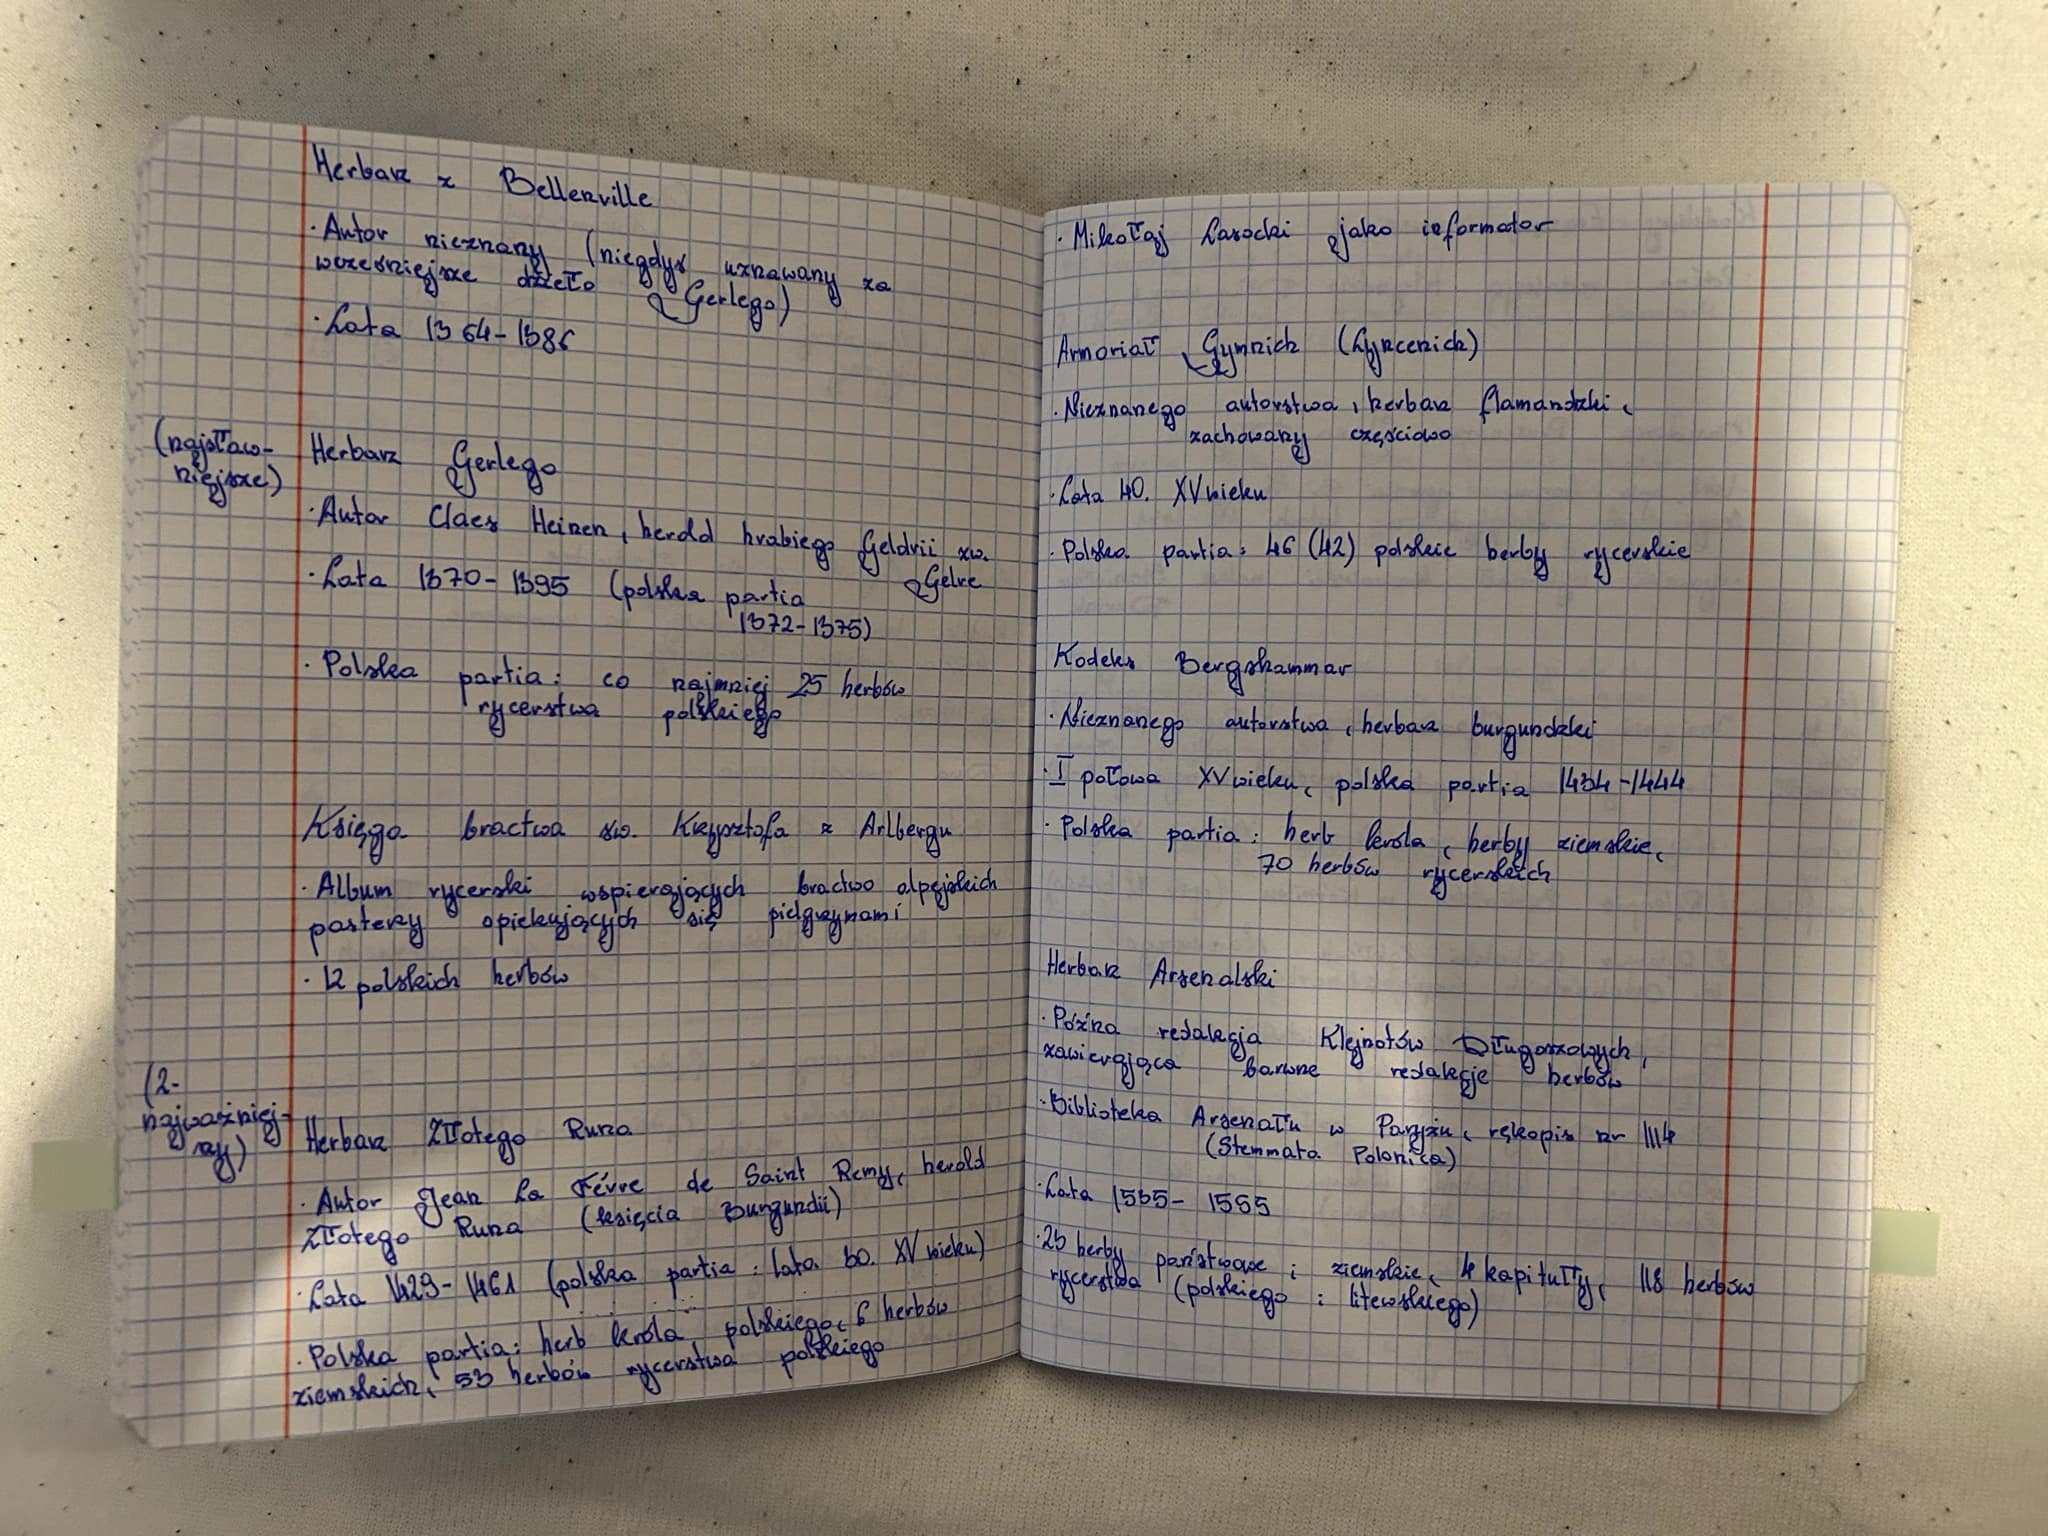 Herbarz z Bellenville
· Autor nieznany (niegdyś uznawany za
wcześniejsze dzieło Gerlego)
· Lata 1364-1386
(najsław-
niejsze)
Herbarz Gerlego
· Autor Claes Heinen, herold hrabiego Geldrii zw.
Gelre
· Lata 1370-1395 (polska partia
1372-1375)
· Polska partia: co najmniej 25 herbów
rycerstwa polskiego
Księga bractwa św. Krzysztofa z Arlbergu
· Album rycerski wspierających bractwo alpejskich
pasterzy opiekujących się pielgrzymami
· 12 polskich herbów
(2-
najważniej-
szy)
Herbarz Złotego Runa
· Autor Jean La Févre de Saint Remy, herold
Złotego Runa (księcia Burgundii)
· Lata 1429-1461 (polska partia: lata 30. XV wieku)
· Polska partia: herb króla polskiego, 6 herbów
ziemskich, 53 herbów rycerstwa polskiego
· Mikołaj Lasocki jako informator
Armoriał Gymnich (Lyncenich)
· Nieznanego autorstwa, herbarz flamandzki,
zachowany częściowo
· Lata 40. XV wieku
· Polska partia: 46 (42) polskie herby rycerskie
Kodeks Bergshammar
· Nieznanego autorstwa, herbarz burgundzki
· I połowa XV wieku, polska partia 1434-1444
· Polska partia: herb króla, herby ziemskie,
70 herbów rycerskich
Herbarz Arsenalski
· Późna redakcja Klejnotów Długoszowych,
zawierająca barwne redakcje herbów
· Biblioteka Arsenału w Paryżu, rękopis nr 1114
(Stemmata Polonica)
· Lata 1535- 1555
· 23 herby państwowe i ziemskie, 4 kapituły, 118 herbów
rycerstwa (polskiego i litewskiego)